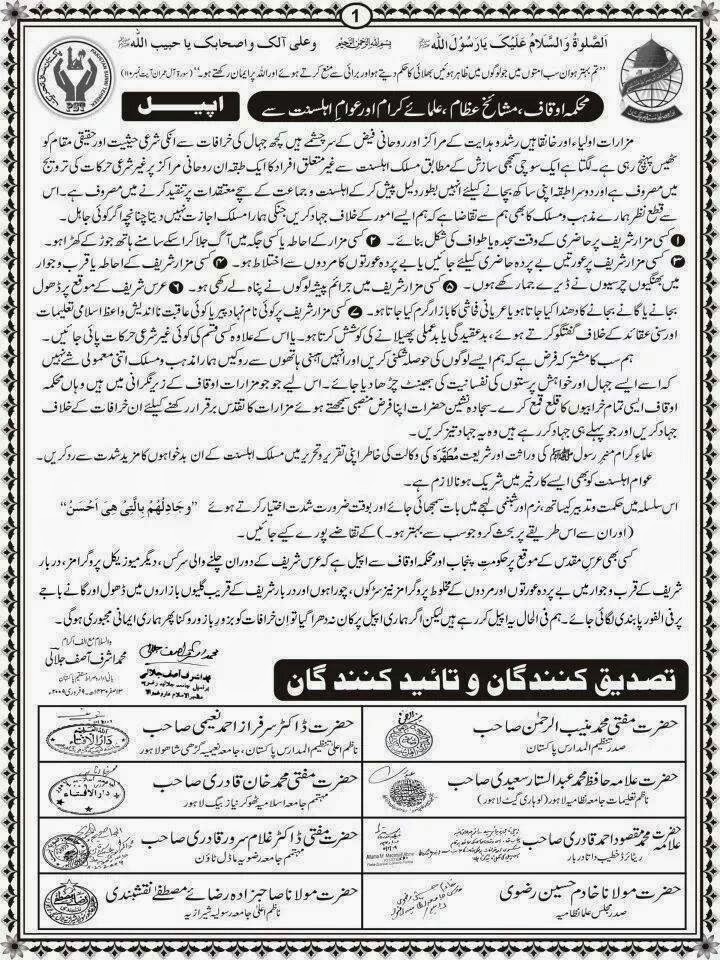 1
الصلوٰۃ والسلام علیک یا رسول اللہ ﷺ بسم اللہ الرحمن الرحیم وعلی آلک واصحابک یا حبیب اللہ ﷺ
”تم بہتر ہو ان سب امتوں میں جو لوگوں میں ظاہر ہوئیں بھلائی کا حکم دیتے ہو اور برائی سے منع کرتے ہو اور اللہ پر ایمان رکھتے ہو۔“ (سورۃ آل عمران آیت نمبر ۱۱۰)
محکمہ اوقاف، مشائخ عظام، علمائے کرام اور عوامِ اہلسنت سے اپیل
مزارات اولیاء اور خانقاہیں رشد و ہدایت کے مراکز اور روحانی فیض کے سرچشمے ہیں کچھ جہال کی خرافات سے انکی شرعی حیثیت اور حقیقی مقام کو
ٹھیس پہنچ رہی ہے۔ لگتا ہے ایک سوچی سمجھی سازش کے مطابق مسلک اہلسنت سے غیر متعلق افراد کا ایک طبقہ ان روحانی مراکز پر غیر شرعی حرکات کی ترویج
میں مصروف ہے اور دوسرا طبقہ اپنی ساکھ بچانے کیلئے انہیں بطور دلیل پیش کر کے اہلسنت و جماعت کے سچے معتقدات پر تنقید کرنے میں مصروف ہے۔ اس
سے قطع نظر ہمارے مذہب و مسلک کا بھی ہم سے تقاضا ہے کہ ہم ایسے امور کے خلاف جہاد کریں جنکی ہمارا مسلک اجازت نہیں دیتا چنانچہ اگر کوئی جاہل۔
۱ کسی مزار شریف پر حاضری کے وقت سجدہ یا طواف کی شکل بنائے۔ ۲ کسی مزار کے احاطہ یا کسی جگہ میں آگ جلا کر اسکے سامنے ہاتھ جوڑ کے کھڑا ہو۔
۳ کسی مزار شریف پر عورتیں بے پردہ حاضری کیلئے جائیں یا بے پردہ عورتوں کا مردوں سے اختلاط ہو۔ ۴ کسی مزار شریف کے احاطہ یا قرب و جوار
میں بھنگیوں چرسیوں نے ڈیرے جما رکھے ہوں۔ ۵ کسی مزار شریف میں جرائم پیشہ لوگوں نے پناہ لے رکھی ہو۔ ۶ عرس شریف کے موقع پر ڈھول
بجانے یا گانے بجانے کا دھندا کیا جاتا ہو یا عریانی فحاشی کا بازار گرم کیا جاتا ہو۔ ۷ کسی مزار شریف پر کوئی نام نہاد پیر یا کوئی عاقبت نا اندیش واعظ اسلامی تعلیمات
اور سنی عقائد کے خلاف گفتگو کرتے ہوئے، بدعقیدگی یا بدعملی پھیلانے کی کوشش کرتا ہو۔ یا اس کے علاوہ کسی قسم کی کوئی غیر شرعی حرکات پائی جائیں۔
ہم سب کا مشترکہ فرض ہے کہ ہم ایسے لوگوں کی حوصلہ شکنی کریں اور انہیں آہنی ہاتھوں سے روکیں ہمارا مذہب و مسلک اتنی معمولی شے نہیں
کہ اسے ایسے جہال اور خواہش پرستوں کی نفسانیت کی بھینٹ چڑھا دیا جائے۔ اس لیے جو جو مزارات اوقاف کے زیر نگرانی میں ہیں وہاں محکمہ
اوقاف ایسی تمام خرابیوں کا قلع قمع کرے۔ سجادہ نشین حضرات اپنا فرض منصبی سمجھتے ہوئے مزارات کا تقدس برقرار رکھنے کیلئے ان خرافات کے خلاف
جہاد کریں اور جو پہلے ہی جہاد کر رہے ہیں وہ یہ جہاد تیز کریں۔
علماءِ کرام منبر رسول ﷺ کی وراثت اور شریعت مطہرہ کی وکالت کی خاطر اپنی تقریر و تحریر میں مسلک اہلسنت کے ان بدخواہوں کا مزید شدت سے رد کریں۔
عوام اہلسنت کو بھی ایسے کارِ خیر میں شریک ہونا لازم ہے۔
اس سلسلہ میں حکمت و تدبیر کیساتھ، نرم اور شبنمی لہجے میں بات سمجھائی جائے اور بوقت ضرورت شدت اختیار کرتے ہوئے ”وَجَادِلْهُمْ بِالَّتِيْ هِيَ اَحْسَنُ“
(اور ان سے اس طریقے پر بحث کرو جو سب سے بہتر ہو۔) کے تقاضے پورے کیے جائیں۔
کسی بھی عرس مقدس کے موقع پر حکومتِ پنجاب اور محکمہ اوقاف سے اپیل ہے کہ عرس شریف کے دوران چلنے والی سرکس، دیگر میوزیکل پروگرامز، دربار
شریف کے قرب و جوار میں بے پردہ عورتوں اور مردوں کے مخلوط پروگرامز نیز سڑکوں، چوراہوں اور دربار شریف کے قریب گلیوں بازاروں میں ڈھول اور گانے باجے
پر فی الفور پابندی لگائی جائے۔ ہم فی الحال یہ اپیل کر رہے ہیں لیکن اگر ہماری اپیل پر کان نہ دھرا گیا تو ان خرافات کو بزورِ بازو روکنا پھر ہماری ایمانی مجبوری ہوگی۔
والسلام مع الف اکرام
محمد اشرف آصف جلالی
بانی ادارہ صراط مستقیم پاکستان
تصدیق کنندگان و تائید کنندگان
حضرت مفتی محمد منیب الرحمٰن صاحب
صدر تنظیم المدارس پاکستان
حضرت ڈاکٹر سرفراز احمد نعیمی صاحب
ناظم اعلیٰ تنظیم المدارس پاکستان، جامعہ نعیمیہ گڑھی شاہو لاہور
حضرت علامہ حافظ محمد عبدالستار سعیدی صاحب
ناظم تعلیمات جامعہ نظامیہ لاہور (لوہاری گیٹ لاہور)
حضرت مفتی محمد خان قادری صاحب
مہتمم جامعہ اسلامیہ ٹھوکر نیاز بیگ لاہور
حضرت علامہ محمد مقصود احمد قادری صاحب
ریٹائرڈ خطیب داتا دربار
حضرت مفتی ڈاکٹر غلام سرور قادری صاحب
مہتمم جامعہ رضویہ ماڈل ٹاؤن
حضرت مولانا خادم حسین رضوی
صدر مجلس علماء نظامیہ
حضرت مولانا صاحبزادہ رضائے مصطفےٰ نقشبندی
ناظم اعلیٰ جامعہ رسولیہ شیرازیہ